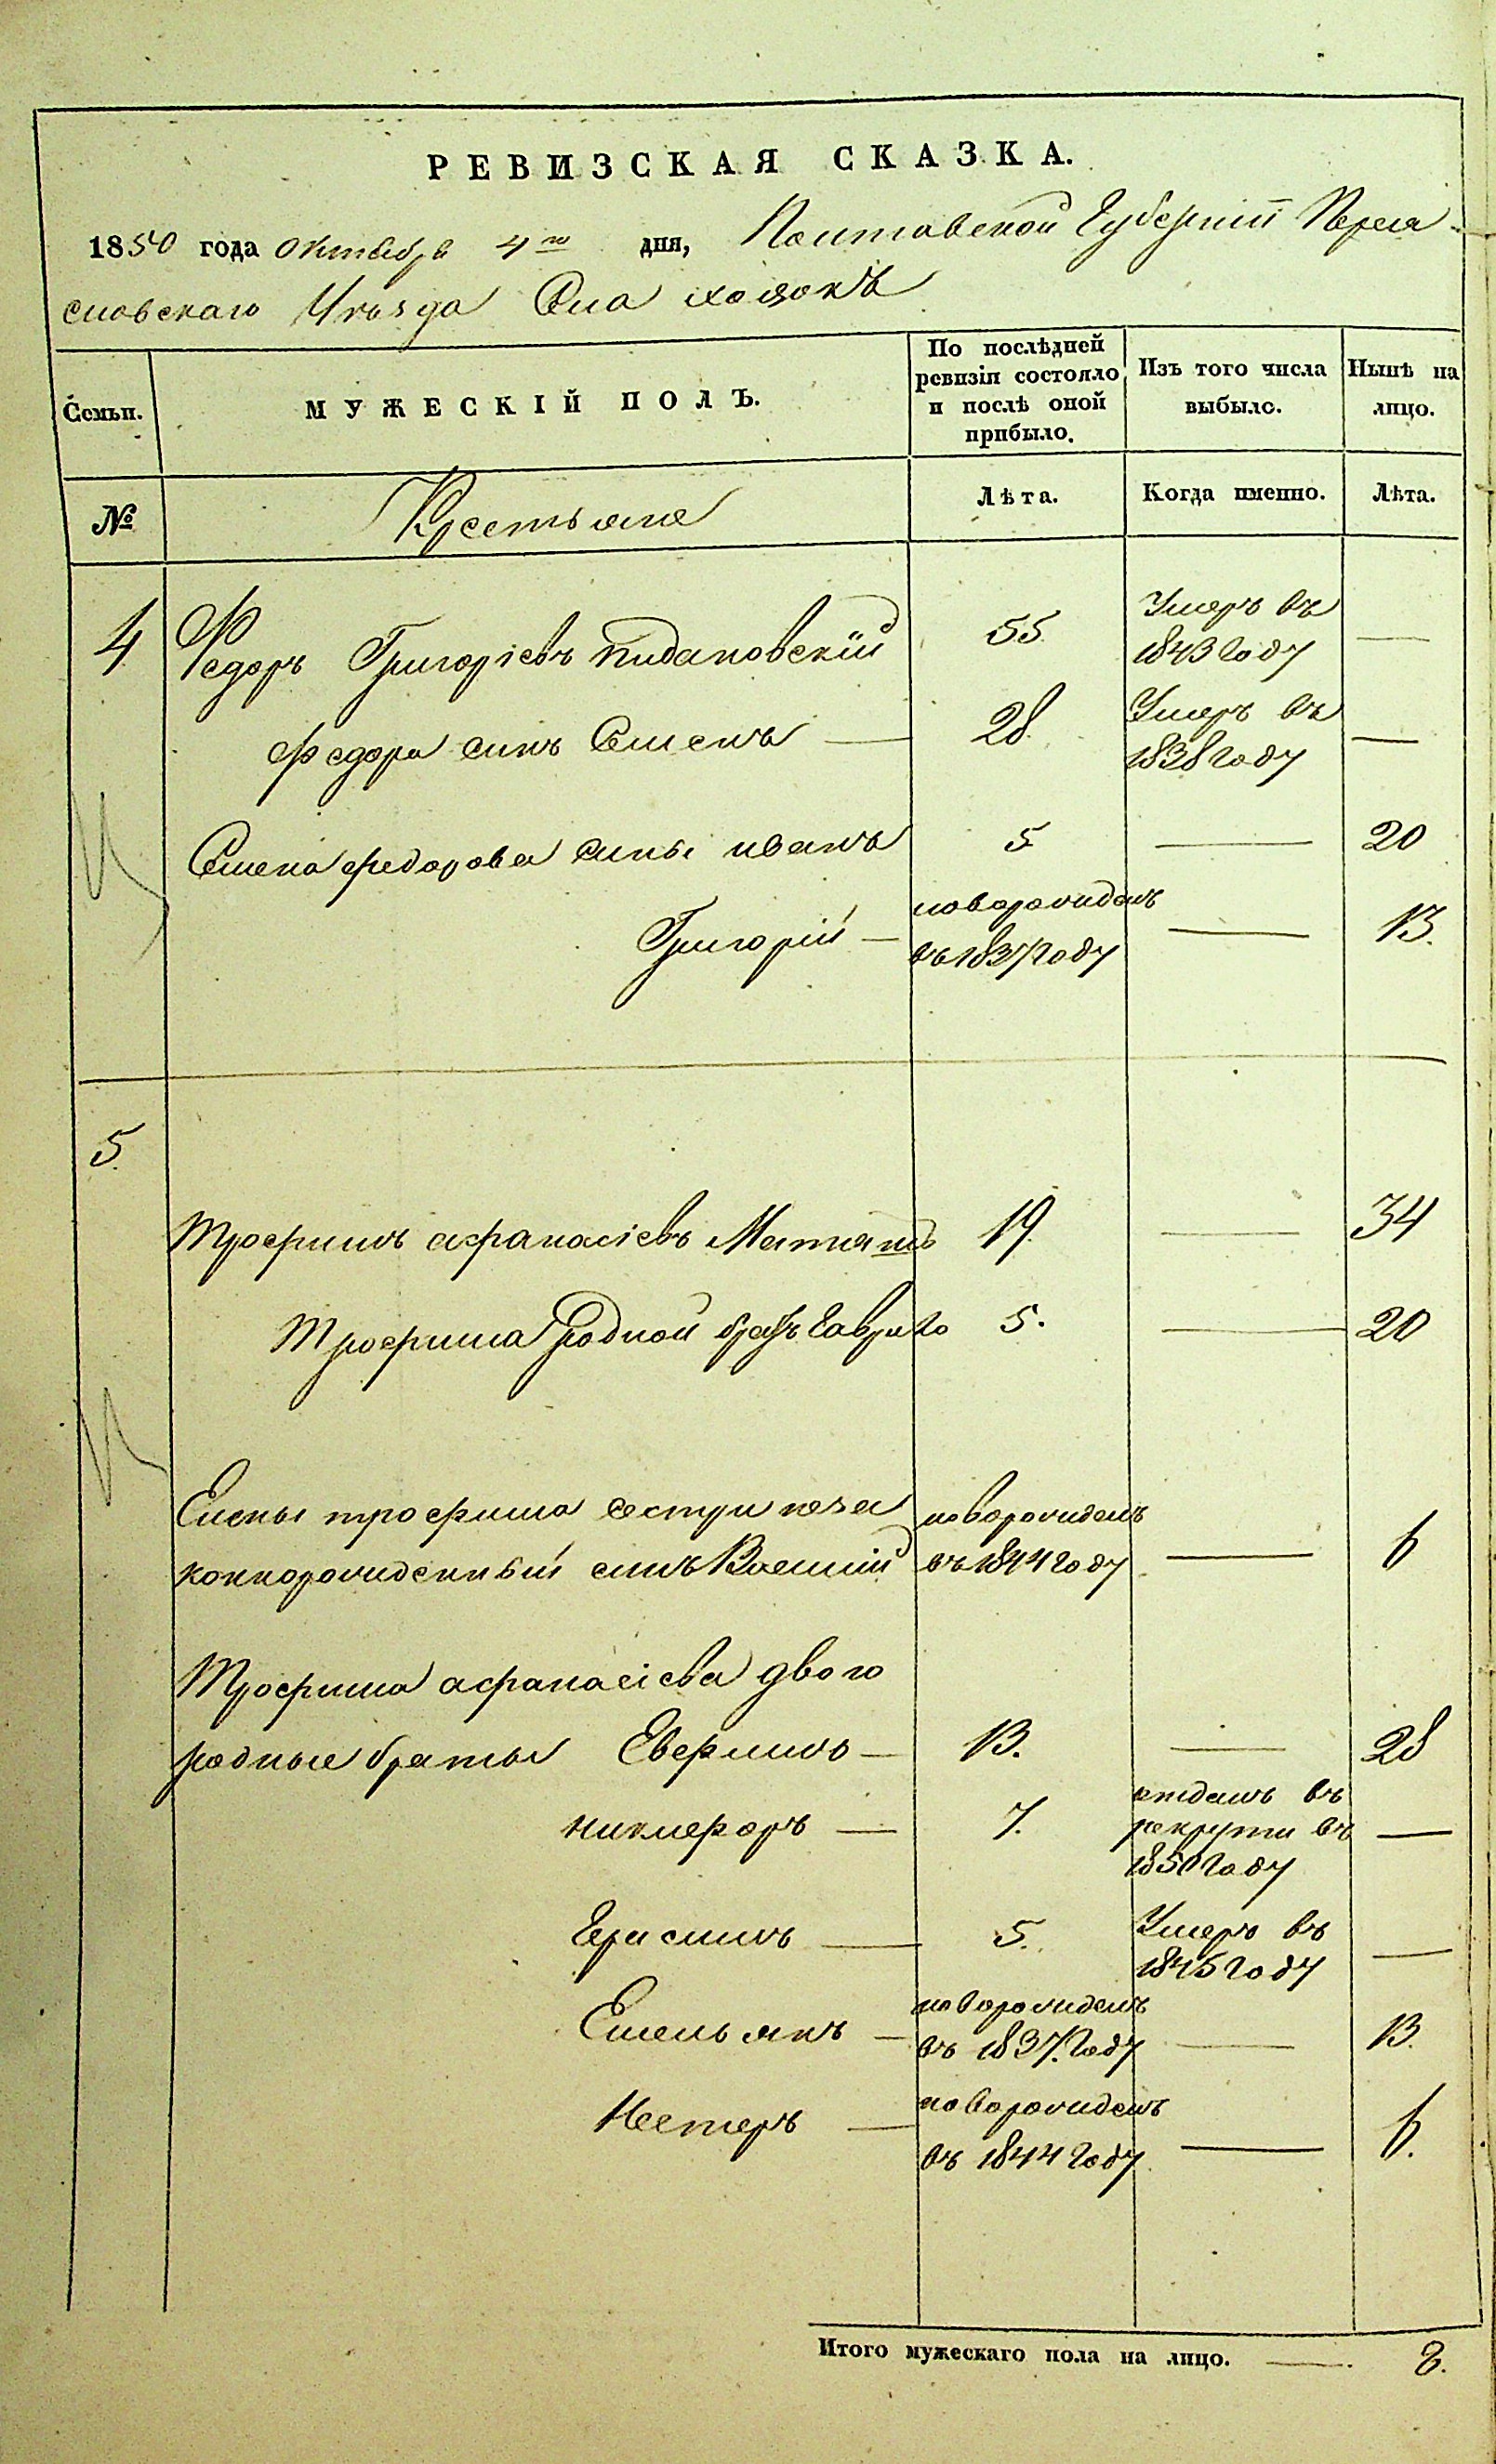 РЕВИЗСКАЯ СКАЗКА.
1850 года октября 4го дня, Полтавской Губерніи Перея
словскаго Уѣзда Села
Семьи.
МУЖЕСКІЙ ПОЛЪ.
По послѣдней
ревизіи состояло
и послѣ оной
прибыло.
Изъ того числа
выбыло.
Нынѣ на
лицо.
№
Крестьяне
Лѣта.
Когда именно.
Лѣта.
4 Федоръ Григоріевъ 55 Умеръ въ
1843 году —
Федора синъ Семенъ — 28. Умеръ въ
1838 году —
Семена федорова сины иванъ 5 — 20
Григорій — новорожденъ
въ 1837 году — 13.
5.
Трофимъ афанасіевъ 19. — 34
Трофима родной братъ Гаврило 5. — 20
Елены трофима сестри неза
коннорожденный синъ Василій новорожденъ
въ 1844 году — 6
Трофима афанасіева двою
родные браты Евфимъ — 13. — 28
никифоръ — 7. отданъ въ
рекруты въ
1850 году —
Герасимъ — 5. Умеръ въ
1845 году —
Емельянъ — новорожденъ
въ 1837. году — 13.
Нестеръ — новорожденъ
въ 1844 году — 6.
Итого мужескаго пола на лицо. — 8.